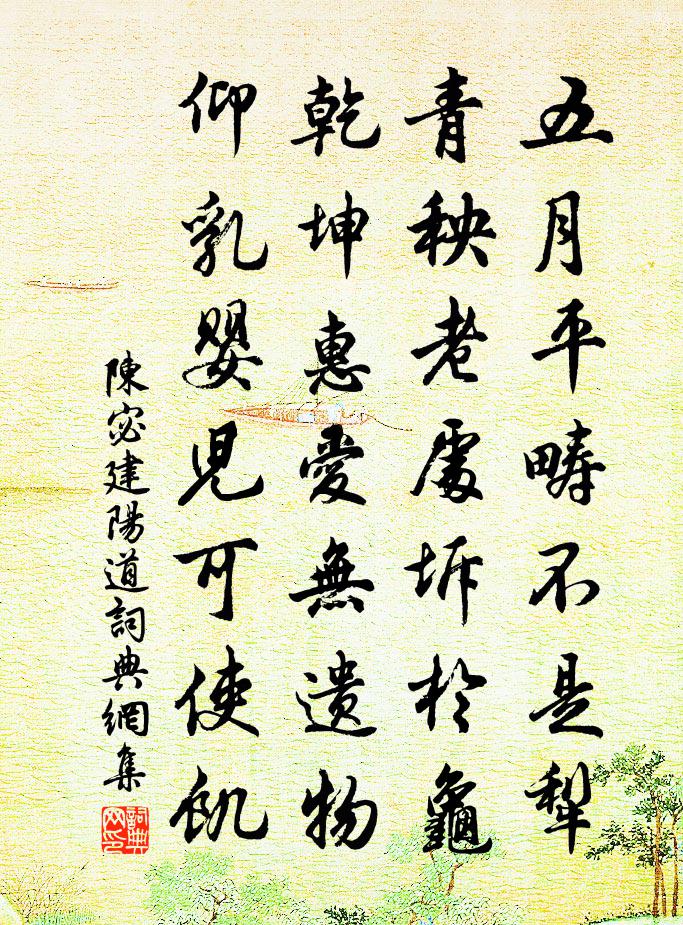 五月平疇不是犁
青秧老處坼於龜
乾坤惠愛無遺物
仰乳嬰兒可使飢
陳宓建陽道詞典網集
詞典網印